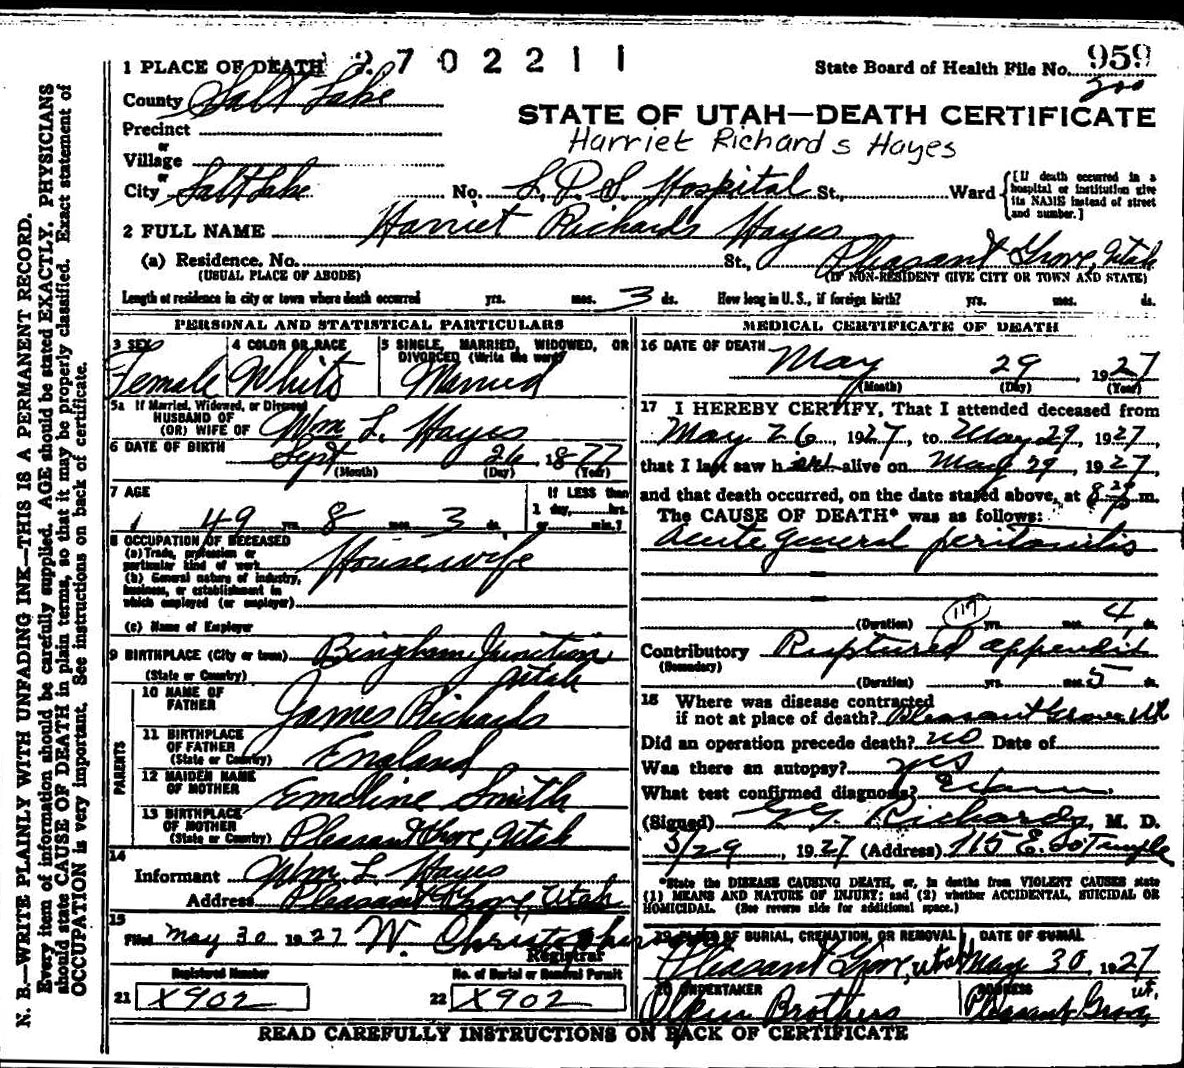 2702211
1 PLACE OF DEATH
State Board of Health File No. 959
200
County Salt Lake
STATE OF UTAH—DEATH CERTIFICATE
Precinct
Harriet Richards Hayes
or
Village
or
City Salt Lake No. L. D. S. Hospital St., Ward
[If death occurred in a hospital or institution give its NAME instead of street and number.]
2 FULL NAME Harriet Richards Hayes
(a) Residence. No. St., Pleasant Grove, Utah
(USUAL PLACE OF ABODE) (IF NON-RESIDENT GIVE CITY OR TOWN AND STATE)
Length of residence in city or town where death occurred yrs. mos. 3 ds. How long in U. S., if foreign birth? yrs. mos. ds.
PERSONAL AND STATISTICAL PARTICULARS
3 SEX 4 COLOR OR RACE 5 SINGLE, MARRIED, WIDOWED, OR
DIVORCED (Write the word)
Female White Married
5a If Married, Widowed, or Divorced
HUSBAND OF
(OR) WIFE OF Wm L. Hayes
6 DATE OF BIRTH Sept 26, 1877
(Month) (Day) (Year)
7 AGE If LESS than
1 day, hrs.
49 yrs. 8 mos. 3 ds. or min.?
8 OCCUPATION OF DECEASED
(a) Trade, profession or
particular kind of work Housewife
(b) General nature of industry,
business, or establishment in
which employed (or employer)
(c) Name of Employer
9 BIRTHPLACE (City or town) Bingham Junction
(State or Country) Utah
PARENTS
10 NAME OF
FATHER James Richards
11 BIRTHPLACE
OF FATHER
(State or Country) England
12 MAIDEN NAME
OF MOTHER Emeline Smith
13 BIRTHPLACE
OF MOTHER
(State or Country) Pleasant Grove, Utah
14
Informant Wm L. Hayes
Address Pleasant Grove, Utah
15
Filed May 30 1927 W. Christopherson
Registrar
Registered Number No. of Burial or Removal Permit
21 X902 22 X902
MEDICAL CERTIFICATE OF DEATH
16 DATE OF DEATH
May 29, 1927
(Month) (Day) (Year)
17 I HEREBY CERTIFY, That I attended deceased from
May 26, 1927, to May 29, 1927
that I last saw her alive on May 29, 1927
and that death occurred, on the date stated above, at 8 20 p m.
The CAUSE OF DEATH* was as follows:
Acute general peritonitis
117
(Duration) yrs. mos. 4 ds.
Contributory Ruptured appendix
(Secondary)
(Duration) yrs. mos. 5 ds.
18 Where was disease contracted
if not at place of death? Pleasant Grove Ut
Did an operation precede death? no Date of
Was there an autopsy? yes
What test confirmed diagnosis? Exam.
(Signed) G. G. Richards, M. D.
5/29, 1927 (Address) 115 E. So Temple
*State the DISEASE CAUSING DEATH, or, in deaths from VIOLENT CAUSES state
(1) MEANS AND NATURE OF INJURY; and (2) whether ACCIDENTAL, SUICIDAL OR
HOMICIDAL. (See reverse side for additional space.)
19 PLACE OF BURIAL, CREMATION, OR REMOVAL DATE OF BURIAL
Pleasant Grove, Utah May 30 1927
20 UNDERTAKER ADDRESS
Olpin Brothers Pleasant Grove, Ut.
READ CAREFULLY INSTRUCTIONS ON BACK OF CERTIFICATE
N. B.—WRITE PLAINLY WITH UNFADING INK—THIS IS A PERMANENT RECORD.
Every item of information should be carefully supplied. AGE should be stated EXACTLY. PHYSICIANS
should state CAUSE OF DEATH in plain terms, so that it may be properly classified. Exact statement of
OCCUPATION is very important. See instructions on back of certificate.